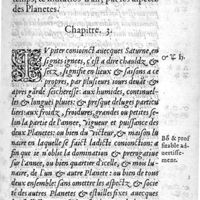 temps, & mutation d'air, par les aspectz
des Planetes.
Chapitre. 3.
IVpiter conioinct auecques Saturne, en
signes ignees, c'est a dire chauldz, &
secz, signifie en lieux & saisons a ce
propres, par plusieurs iours deuãt &
apres garde seicheresse: aux humides, continuel-
les & longues pluies: & presque deluges particu
liers: aux froidz, froidures, grandes ou petites se-
lon la partie de l'annee, vigueur & puissance des
deux Planetes: ou bien du victeur, & maison lu
naire en laquelle se faict ladicte conionction: &
finable ad-
uertisse-
ment.
sur l'annee, ou bien quartier d'icelle, & mois lu-
naire, de l'un ou l'autre Planete: ou bien de tous
deux ensemble: sans omettre les aspectz, & socie
té des autres Planetes & estoilles fixes auecques